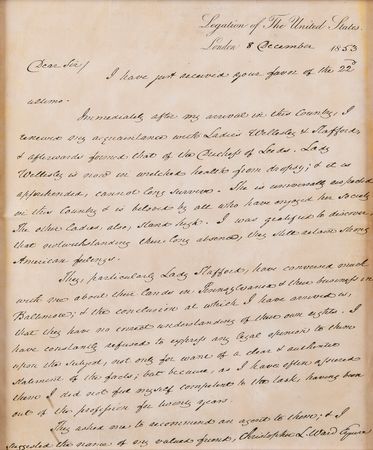 Legation of The United States.
London 8 December 1853
Dear Sir/
I have just received your favor of the 22d
ultimo.
Immediately after my arrival in this Country, I
renewed my acquaintance with Ladies Wellesley & Stafford,
& afterwards formed that of the Duchess of Leeds. Lady
Wellesley is now in wretched health from dropsy; & it is
apprehended, cannot long survive. She is universally respected
in this Country & is beloved by all who have enjoyed her Society.
The other Ladies, also, stand high. I was gratified to discover
that notwithstanding their long absence, they still retain strong
American feelings.
They, particularly Lady Stafford, have conversed much
with me about their lands in Pennsylvania & their business in
Baltimore; & the conclusion at which I have arrived is,
that they have no correct understanding of their own rights. I
have constantly refused to express any legal opinion to them
upon the subject, not only for want of a clear & authentic
statement of the facts; but because, as I have often assured
them I did not feel myself competent to the task, having been
out of the profession for twenty years.
They asked me to recommend an agent to them; & I
suggested the name of my valued friend, Christopher L. Ward Esquire